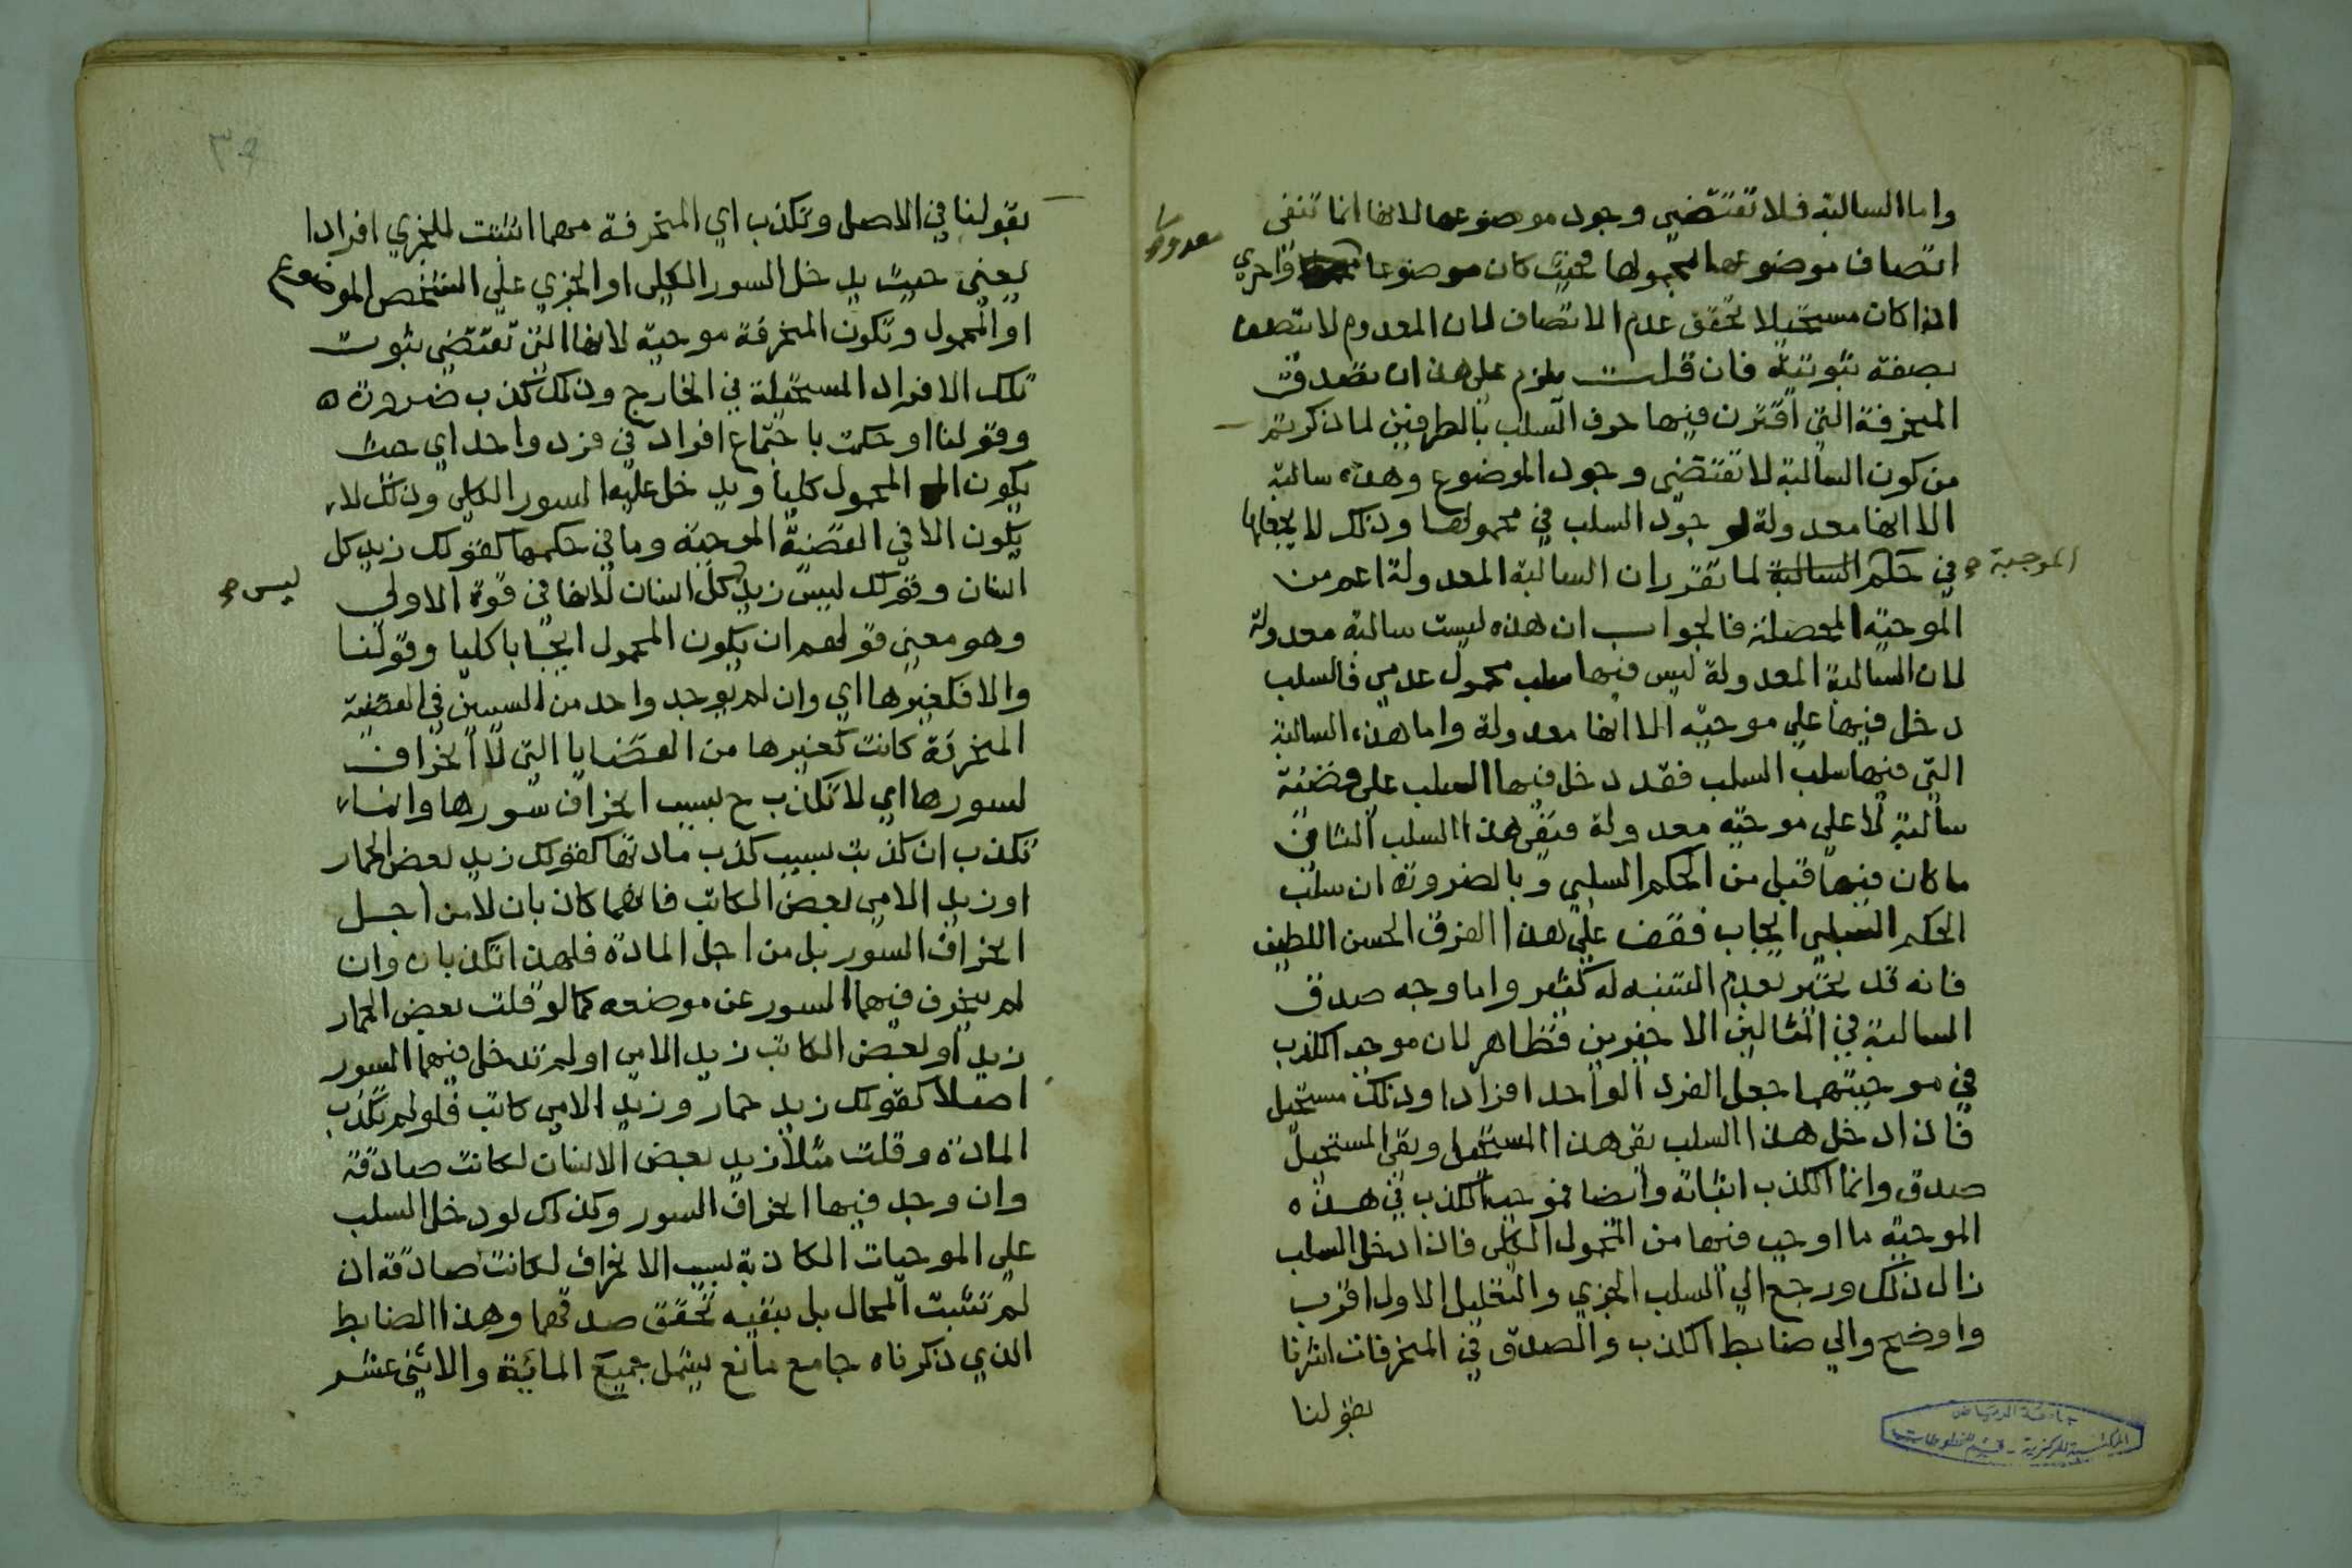 واما السالبة فلا تقتضي وجود موضوعها لانها انما تنفى
اتصاف موضوعها بمحمولها فحيث كان موضوعها معدوما فاحري
اذا كان مستحيلا تحقق عدم الاتصاف لان المعدوم لا يتصف
بصفة ثبوتية فان قلت يلزم على هذا ان تصدق
المنحرفة التي اقترن فيها حرف السلب بالطرفين لما ذكرتم
من كون السالبة لا تقتضي وجود الموضوع وهذه سالبة
الا انها معدولة لوجود السلب في محمولها وذلك لا يجعلها
في حكم السالبة الموجبة لما تقرر ان السالبة المعدولة اعم من
الموجبة المحصلة فالجواب ان هذه ليست سالبة معدولة
لان السالبة المعدولة ليس فيها سلب محمول عدمي فالسلب
دخل فيها علي موجبة الا انها معدولة واما هذه السالبة
التي فيها سلب السلب فقد دخل فيها السلب على قضية
سالبة لا علي موجبة معدولة فنفى هذا السلب الثاني
ما كان فيها قبل من الحكم السلبي وبالضرورة ان سلب
الحكم السلبي ايجاب فقف علي هذا الفرق الحسن اللطيف
فانه قد يغتر بعدم التنبه له كثير واما وجه صدق
السالبة في المثالين الاخيرين فظاهر لان موجب الكذب
في موجبتهما جعل الفرد الواحد افرادا وذلك مستحيل
فاذا دخل هذا السلب نفى هذا المستحيل ونفي المستحيل
صدق وانما الكذب اثباته وايضا فموجب الكذب في هذه
الموجبة ما اوجب فيها من المحمول الكلي فاذا دخل السلب
زال ذلك ورجع الي السلب الجزي والتعليل الاول اقرب
واوضح والي ضابط الكذب والصدق في المنحرفات اشرنا
بقولنا
جامعة الرياض
المكتبة المركزية - قسم المخطوطات
بقولنا في الاصل وتكذب اي المنحرفة مهما اثبتت للجزي افرادا
يعني حيث يدخل السور الكلي او الجزي علي الشخص الموضوع
او المحمول وتكون المنحرفة موجبة لانها التي تقتضي ثبوت
تلك الافراد المستحيلة في الخارج وذلك كذب ضرورة
وقولنا او حكمت باجتماع افراد في فرد واحد اي حيث
يكون المحمول كليا ويدخل عليه السور الكلي وذلك لا
يكون الا في القضية الموجبة وما في حكمها كقولك زيد كل
انسان وقولك ليس زيد ليس كل انسان لانها في قوة الاولي
وهو معني قولهم ان يكون المحمول ايجابا كليا وقولنا
والا فكغيرها اي وان لم يوجد واحد من السببين في القضية
المنحرفة كانت كغيرها من القضايا التي لا انحراف
لسورها اي لا تكذب ح بسبب انحراف سورها وانما
تكذب ان كذبت بسبب كذب مادتها كقولك زيد بعض الحمار
او زيد الامي بعض الكاتب فانهما كاذبان لا من اجل
انحراف السور بل من اجل المادة فلهذا تكذبان وان
لم ينحرف فيهما السور عن موضعه كما لو قلت بعض الحمار
زيد او بعض الكاتب زيد الامي او لم تدخل فيهما السور
اصلا كقولك زيد حمار وزيد الامي كاتب فلو لم تكذب
المادة وقلت مثلا زيد بعض الانسان لكانت صادقة
وان وجد فيها انحراف السور وكذلك لو دخل السلب
علي الموجبات الكاذبة بسبب الانحراف لكانت صادقة اذ
لم تثبت المحال بل بنفيه تحقق صدقها وهذا الضابط
الذي ذكرناه جامع مانع يشمل جميع المائة والاثني عشر